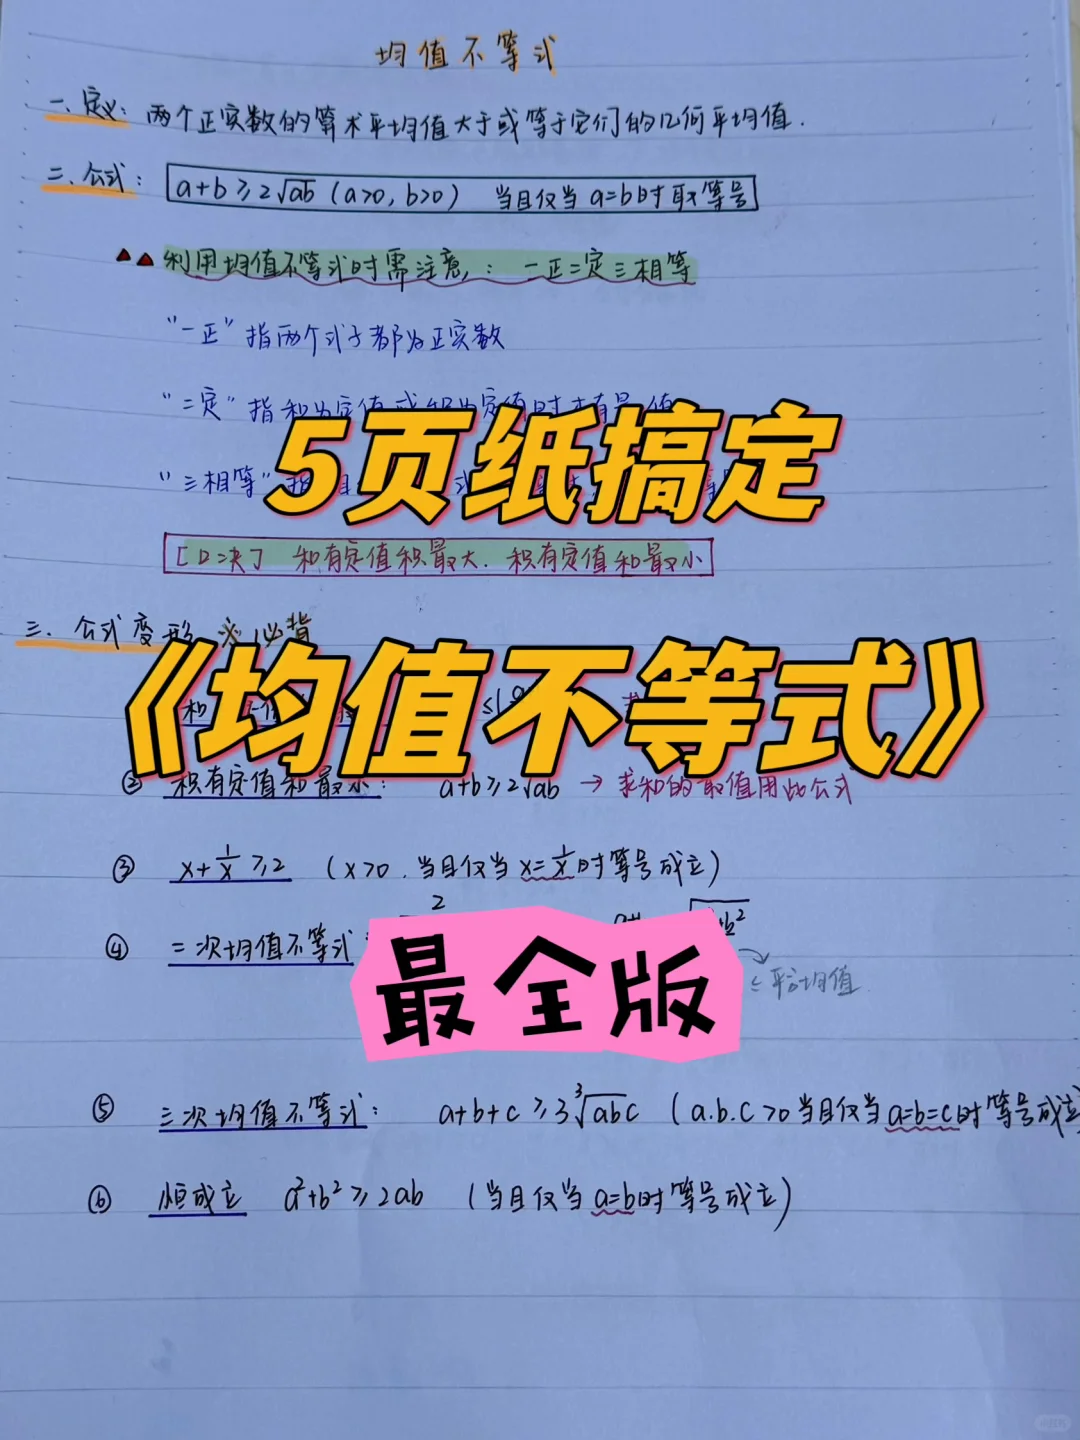 均值不等式
一、定义：两个正实数的算术平均值大于或等于它们的几何平均值.
二、公式：a+b≥2√ab (a>0, b>0) 当且仅当 a=b时取等号
利用均值不等式时需注意：一正二定三相等
"一正"指两个式子都为正实数
"二定"指和为定值或积为定值时才有最值
5页纸搞定
"三相等"
[口决] 和有定值积最大. 积有定值和最小
三、公式变形 必背
《均值不等式》
和
② 积有定值和最小： a+b≥2√ab → 求和的最值用此公式
③ x+1/x≥2 (x>0.当且仅当x=1/x时等号成立)
④ 二次均值不等式：
最全版
≤平方均值
⑤ 三次均值不等式： a+b+c≥3∛abc (a.b.c>0当且仅当a=b=c时等号成立
⑥ 恒成立 a²+b²≥2ab (当且仅当a=b时等号成立)